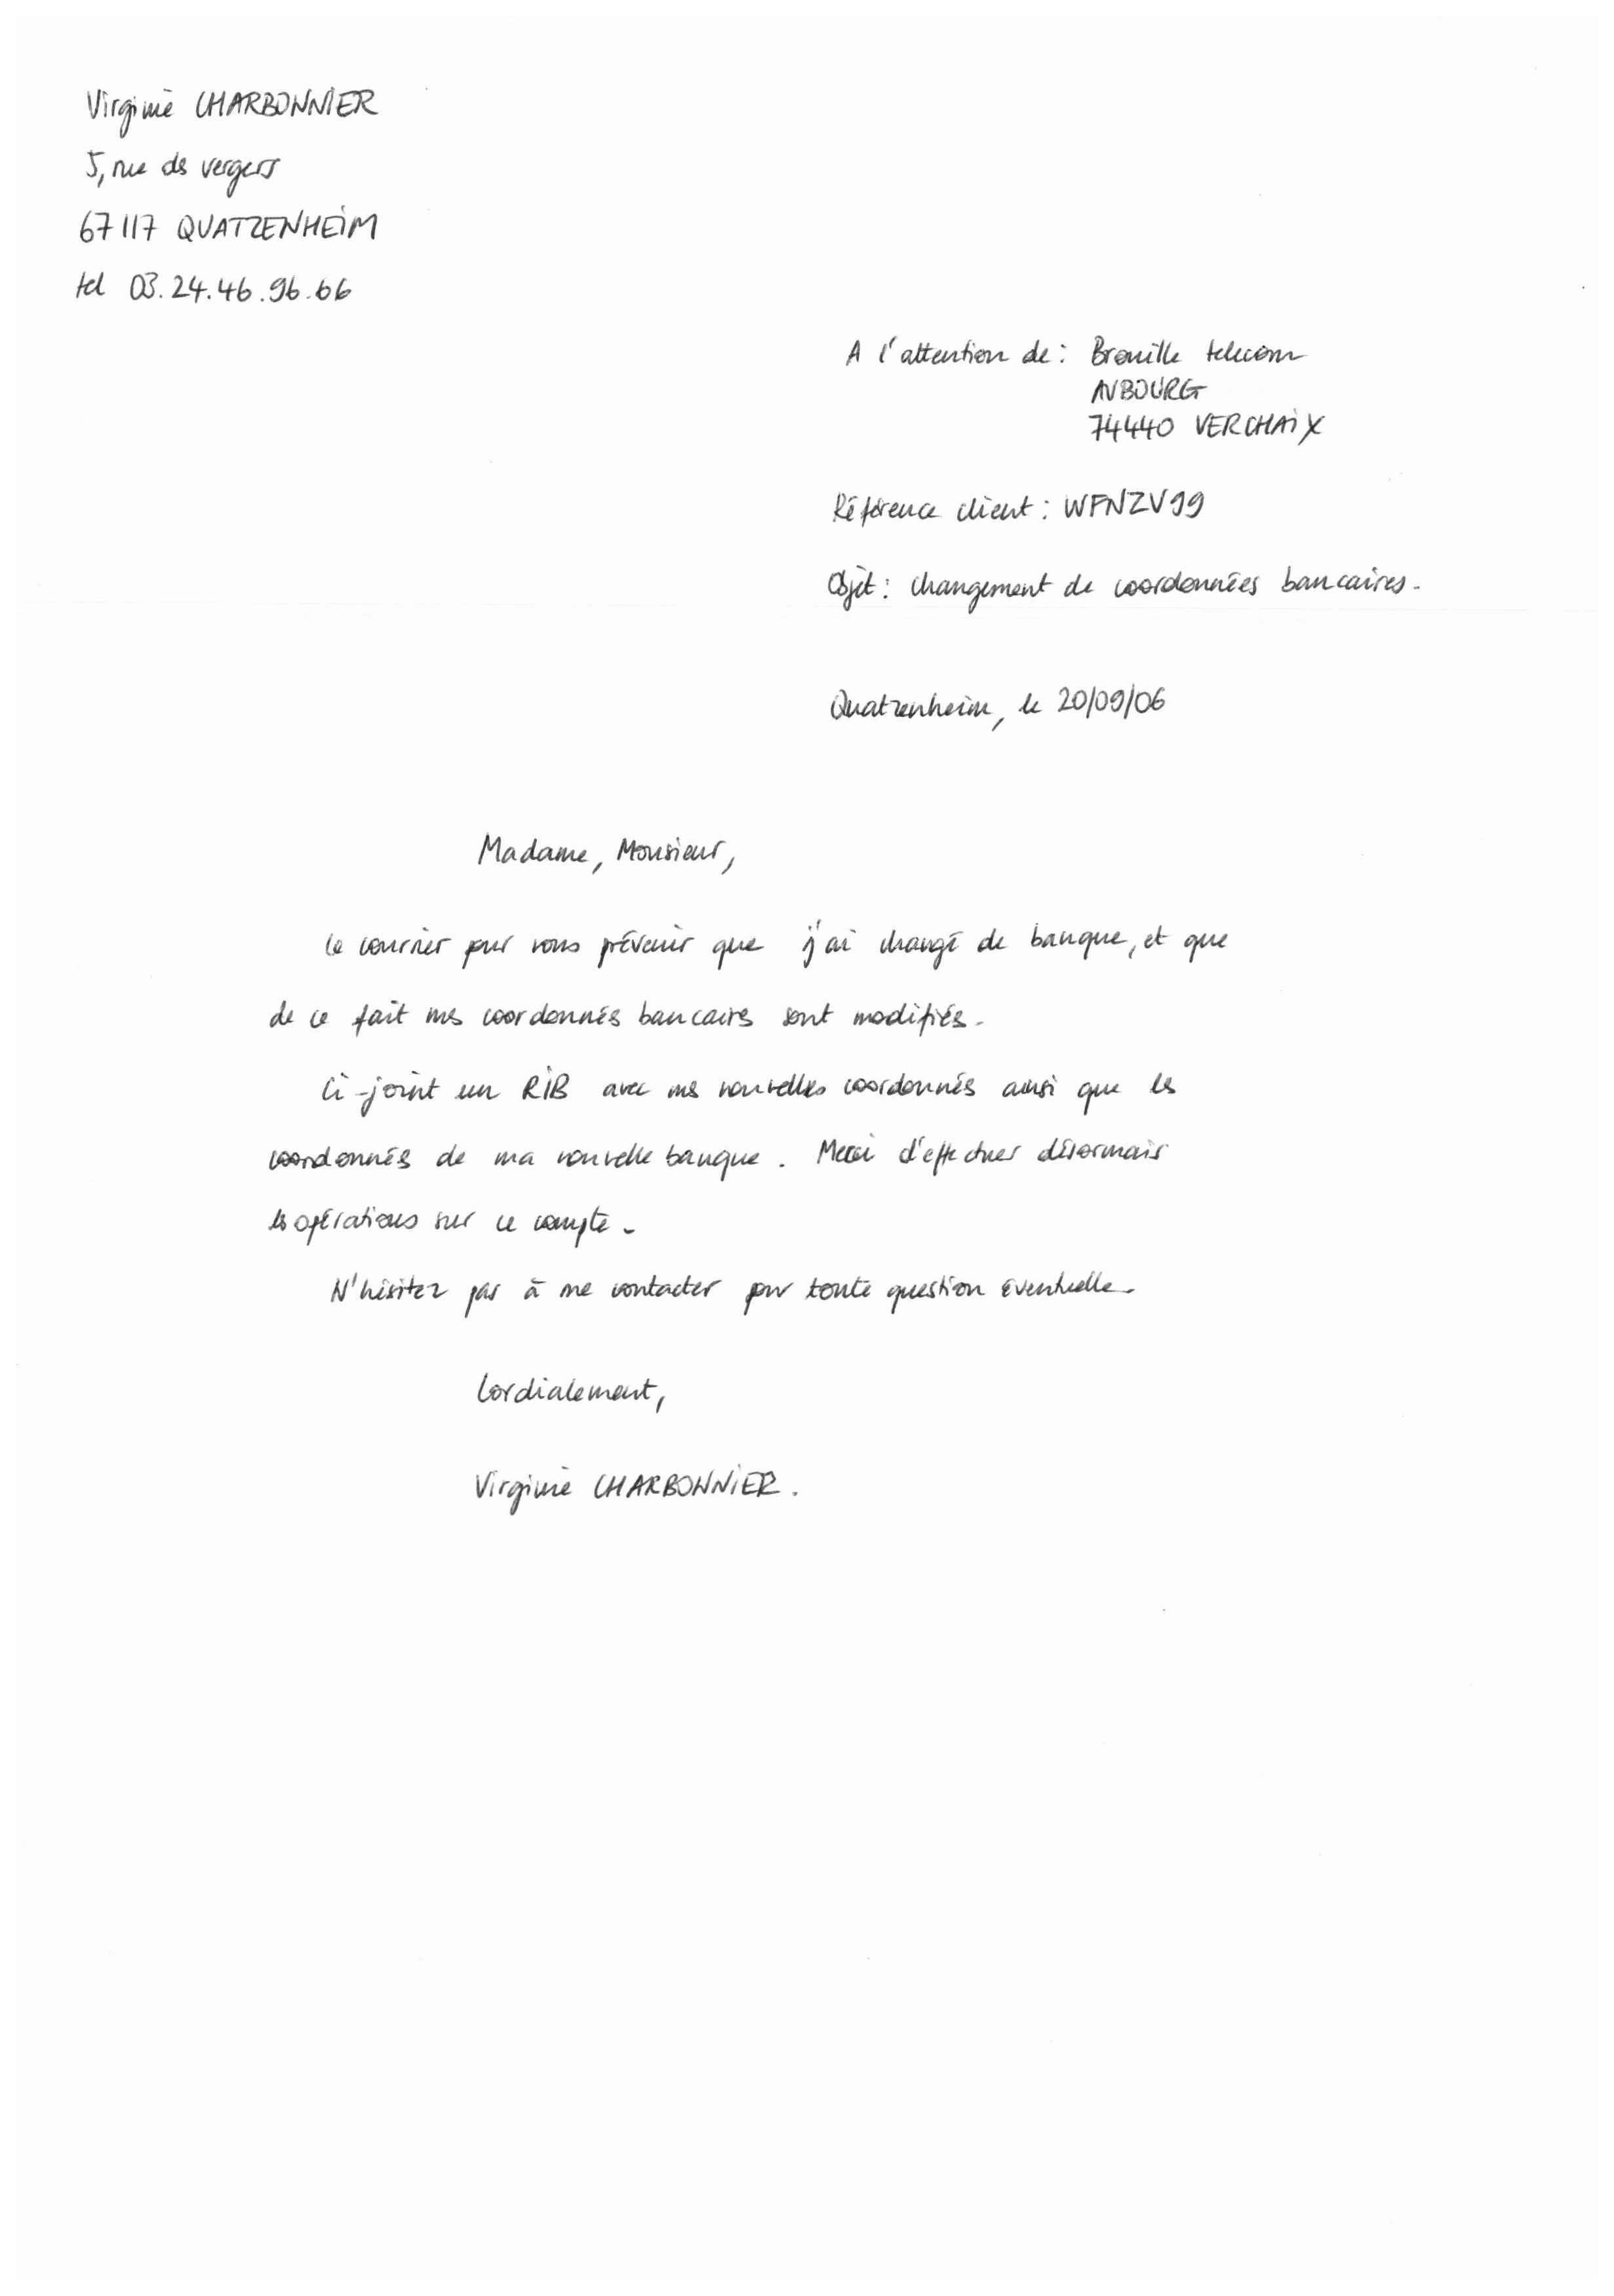 Virginie CHARBONNIER
5, rue des vergers
67117 QUATZENHEIM
tel 03.24.46.96.66
A l'attention de : Brouille telecom
AUBOURG
74440 VERCHAIX
Référence client : WFNZV99
Objet : changement de coordonnées bancaires.
Quatzenheim, le 20/09/06
Madame, Monsieur,
Ce courrier pour vous prévenir que j'ai changé de banque, et que
de ce fait mes coordonnés bancaires sont modifiés.
Ci-joint un RIB avec mes nouvelles coordonnés ainsi que les
coordonnés de ma nouvelle banque. Merci d'effectuer désormais
les opérations sur ce compte.
N'hésitez pas à me contacter pour toute question éventuelle.
Cordialement,
Virginie CHARBONNIER.